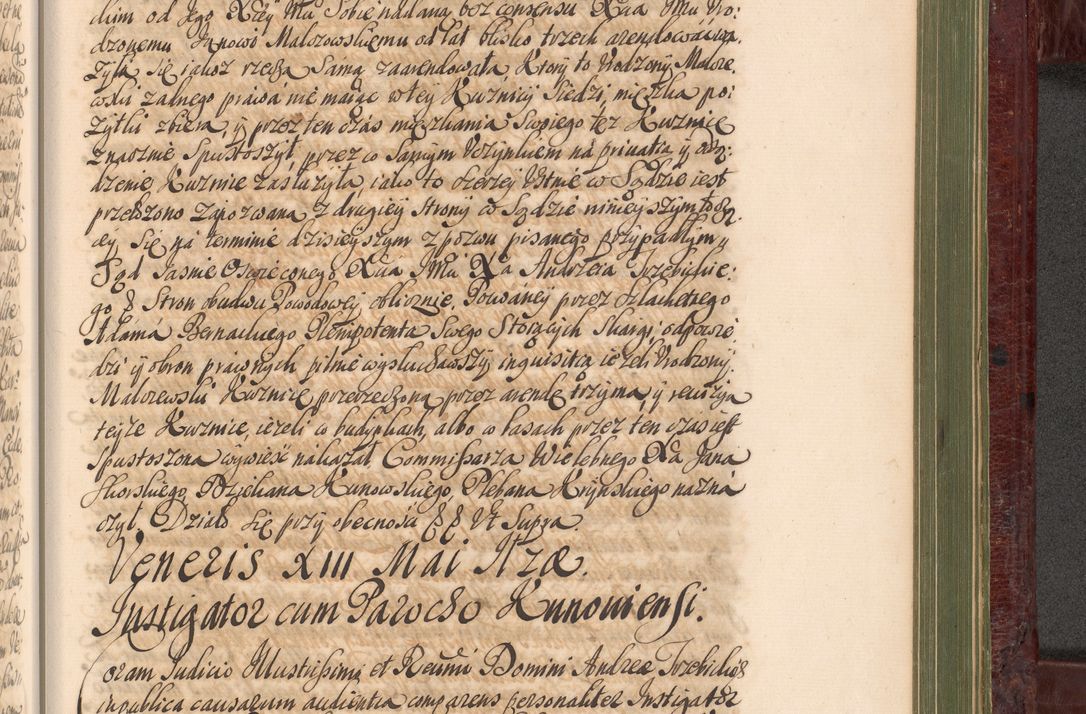 dium od Jego Xcey Mci Sobie nadana, bez consensu Xcia JMci Uro:
dzonemu Janowi Malczowskiemu od lat blisko trzech arendowawszy
Zyła się jakoż rzeczą Samą zaarendowała Ktory to Urodzony Malcze,
wski żadnego prawa nie maiąc w tey Kuznicy Siedzi, mieszka po:
żytki zbiera, y przez ten czas mieszkania Swoiego też Kuznicę
znacznie Spustoszył, przez co Samym Uczynkiem na privatią y
dzenie Kuznice zasłużyła, iako to szerzey Ustnie w Sądzie iest
przełożono zapozwana, z drugiey Strony w Sądzie ninieyszym
cey Się na terminie dzisieyszym z pozwu pisanego przypadłym y
Sąd Jasnie Oswieconego Xcia JMci Xa Andrzeia Trzebickie:
go & Stron obudwu Powodowey oblicznie, Pozwaney przez szlachetnego
Adama Bernackiego Plenipotenta Swego Storących Skargi, odpowie
dzi y obron prawnych pilnie wysłuchawszy inquisitią ieżeli Urodzony
Malczewski Kuznicę przerzeczoną przez arendę trzyma, y
teyże Kuznice, ieżeli w budynkach, albo w lasach przez ten czas iest
Spustoszona wywieść nakazał, Commissarza Wielebnego Xa Jana
Skorskiego Dziekana Kunowskiego, Plebana Krynskiego nazna
czył, Działo się przy obecności & & Ut Supra
Veneris XIII Mai Itzæ.
Instigator cum Parocho Kunoviensi.
Coram Judicio Illustrissimi et Reverendissimi Domini Andreæ Trzebicki &
in publica causarum audientia comparens personaliter Instigator